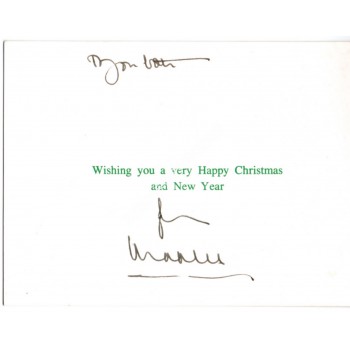 To you both
Wishing you a very Happy Christmas
and New Year
from